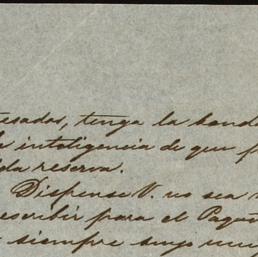 esados, tenga la bond
inteligencia de que p
da reserva.
Dispense V. no sea
escribir para el Paque
siempre suyo muy